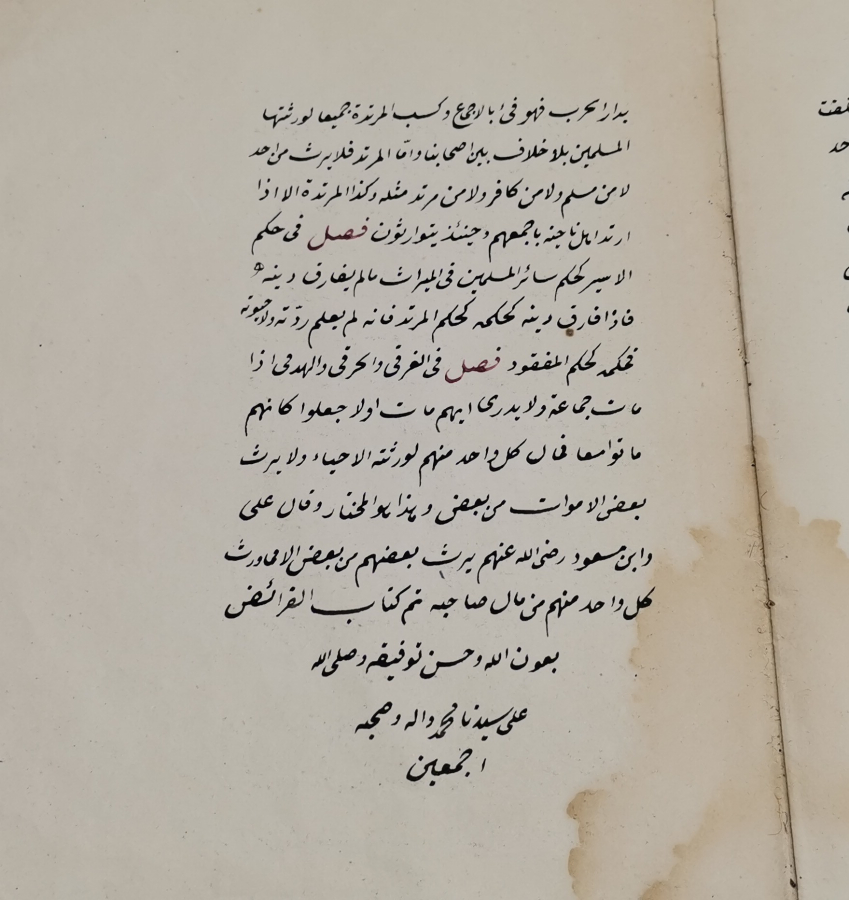 بدار الحرب فهو فئ بالاجماع وكسب المرتدة جميعا لورثتها
المسلمين بلا خلاف بين اصحابنا واما المرتد فلا يرث من احد
لا من مسلم ولا من كافر ولا من مرتد مثله وكذا المرتدة الا اذا
ارتد اهل ناحية باجمعهم وحينئذ يتوارثون فصل فى حكم
الاسير كحكم سائر المسلمين فى الميراث مالم يفارق دينه
فاذا فارق دينه كحكمه كحكم المرتد فانه لم يعلم ردته ولا حيوته
فحكمه كحكم المفقود فصل فى الغرقى والحرقى والهدمى اذا
مات جماعة ولا يدرى ايهم مات اولا جعلوا كانهم
ماتوا معا فمال كل واحد منهم لورثته الاحياء ولا يرث
بعض الاموات من بعض وهذا هو المختار وقال على
وابن مسعود رضى الله عنهم يرث بعضهم من بعض الا مما ورث
كل واحد منهم من مال صاحبه تم كتاب الفرائض
بعون الله وحسن توفيقه وصلى الله
على سيدنا محمد واله وصحبه
اجمعين